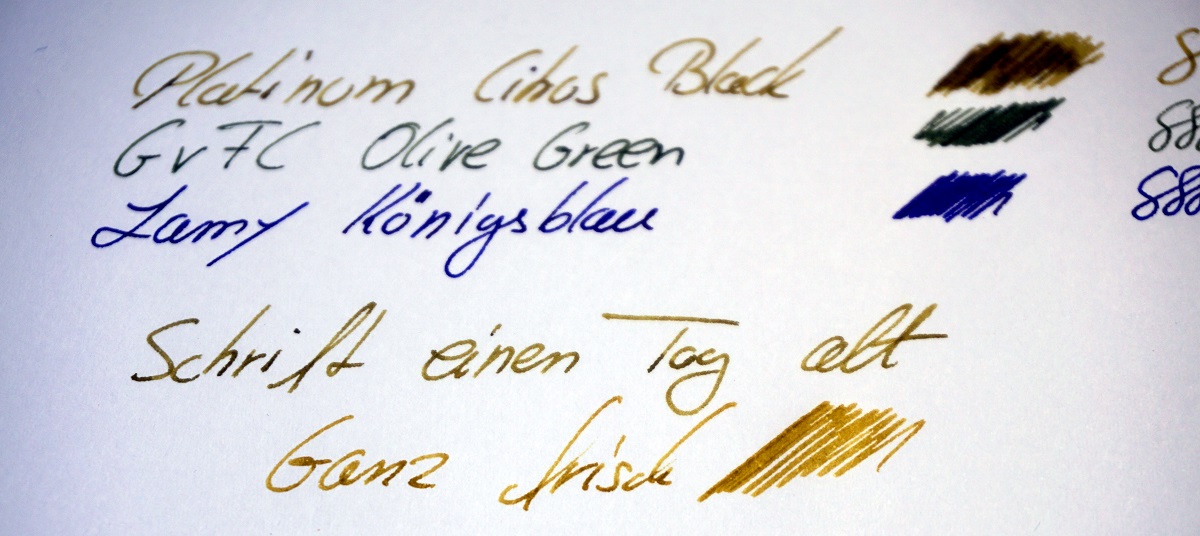 Platinum Citrus Black 8
GvFC Olive Green 888
Lamy Königsblau 888
Schrift einen Tag alt
Ganz frisch